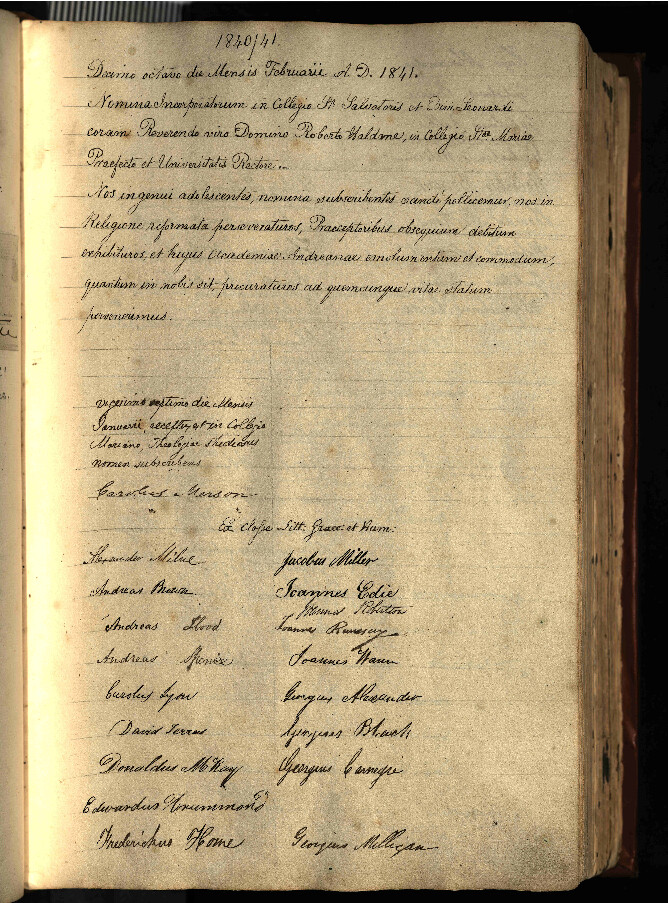 1840/41.
Decimo octavo die Mensis Februarii A. D. 1841.
Nomina Incorporatorum in Collegio Sti Salvatoris et Divi Leonardi
coram Reverendo viro Domino Roberto Haldane, in Collegio Stae Mariae
Praefecto et Universitatis Rectore.
Nos ingenui adolescentes, nomina subscribentes sancte pollicemur, nos in
Religione reformata perseveraturos, Praeceptoribus obsequium debitum
exhibituros, et hujus Academiae Andreanae emolumentum et commodum,
quantum in nobis sit, procuraturos ad quemcunque vitae statum
pervenerimus.
vicesimo septimo die Mensis
Januarii receptus est in Collegio
Mariano, Theologiae Studiosus
nomen subscribens
Carolus
Ex Classe Litt. Graec. et Hum.
Alexander Milne
Jacobus Miller
Andreas Brown
Joannes Edie
Robertson
Andreas Hood
Joannes Ramsay
Andreas
Joannes
Carolus Lyon
Georgius Alexander
David
Georgius Black
Donaldus McKay
Georgius Carnegie
Edwardus Drummond
Fredericus Home
Georgius Milligan